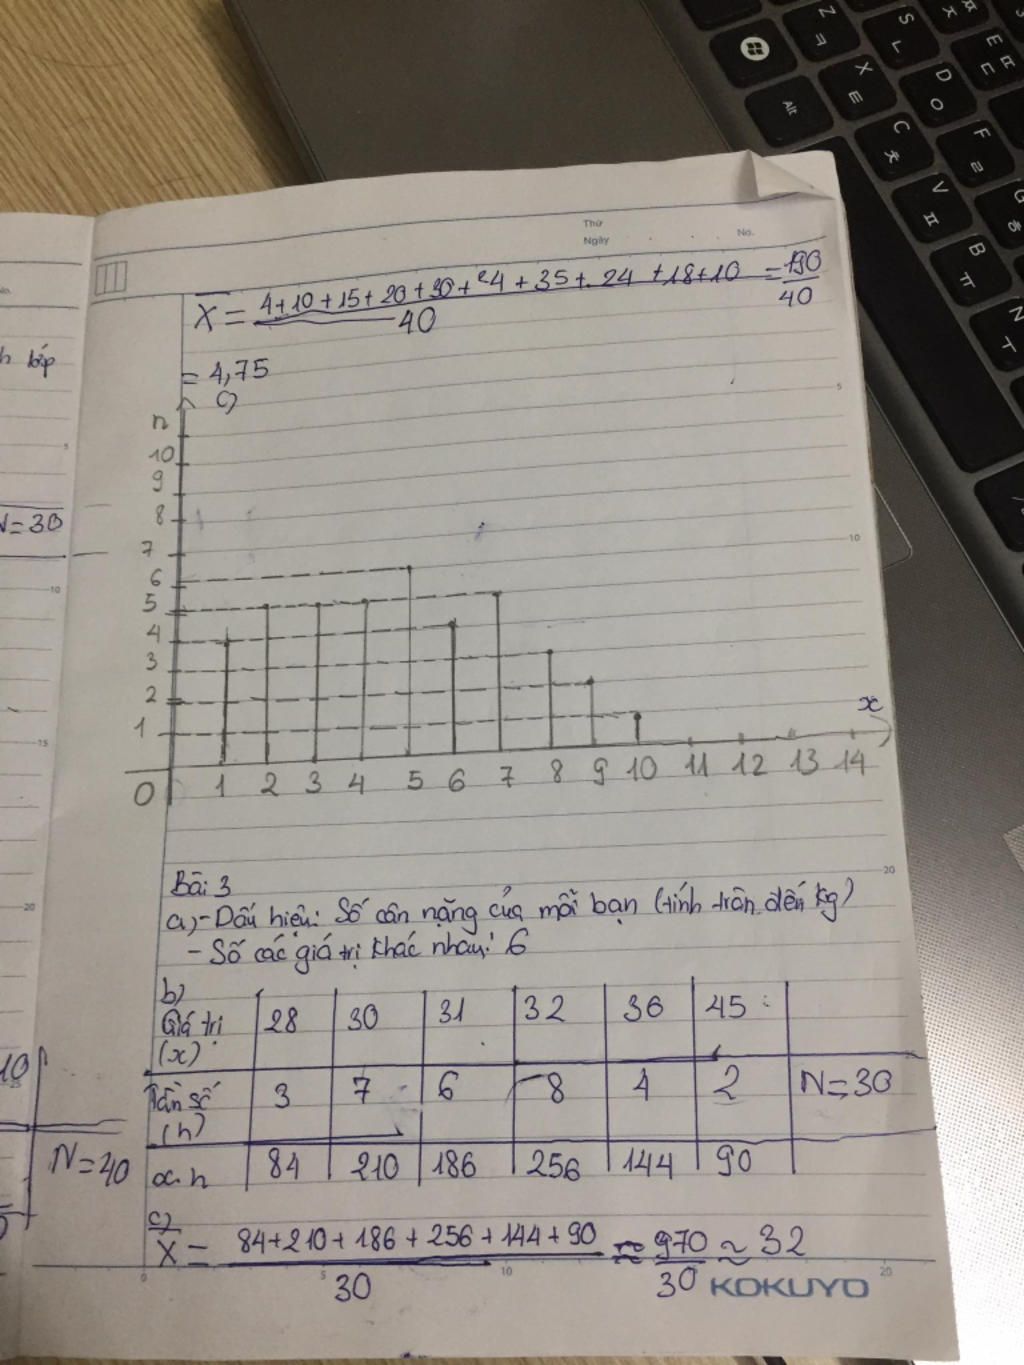 Thứ
Ngày
No.
X̄ = 4+10+15+20+30+24+35+24+18+10 = 190
40 40
= 4,75
c)
n
10
9
8
7
6
5
4
3
2
1
0 1 2 3 4 5 6 7 8 9 10 11 12 13 14
x
Bài 3
a) - Dấu hiệu: Số cân nặng của mỗi bạn (tính tròn đến kg)
- Số các giá trị khác nhau: 6
b)
Giá trị (x) 28 30 31 32 36 45
Tần số (n) 3 7 6 8 4 2 N=30
x.n 84 210 186 256 144 90
c)
X̄ = 84+210+186+256+144+90 ≈ 970 ≈ 32
30 30
KOKUYO
h lớp
N=30
10
N=40
5
10
15
20
5
10
20
0 5 10 20
Alt
Z ㅋ
S ㄴ
X ㅌ
D ㅇ
C ㅊ
F ㄹ
V ㅍ
B ㅠ
N ㅜ
E ㄷ
G ㅎ